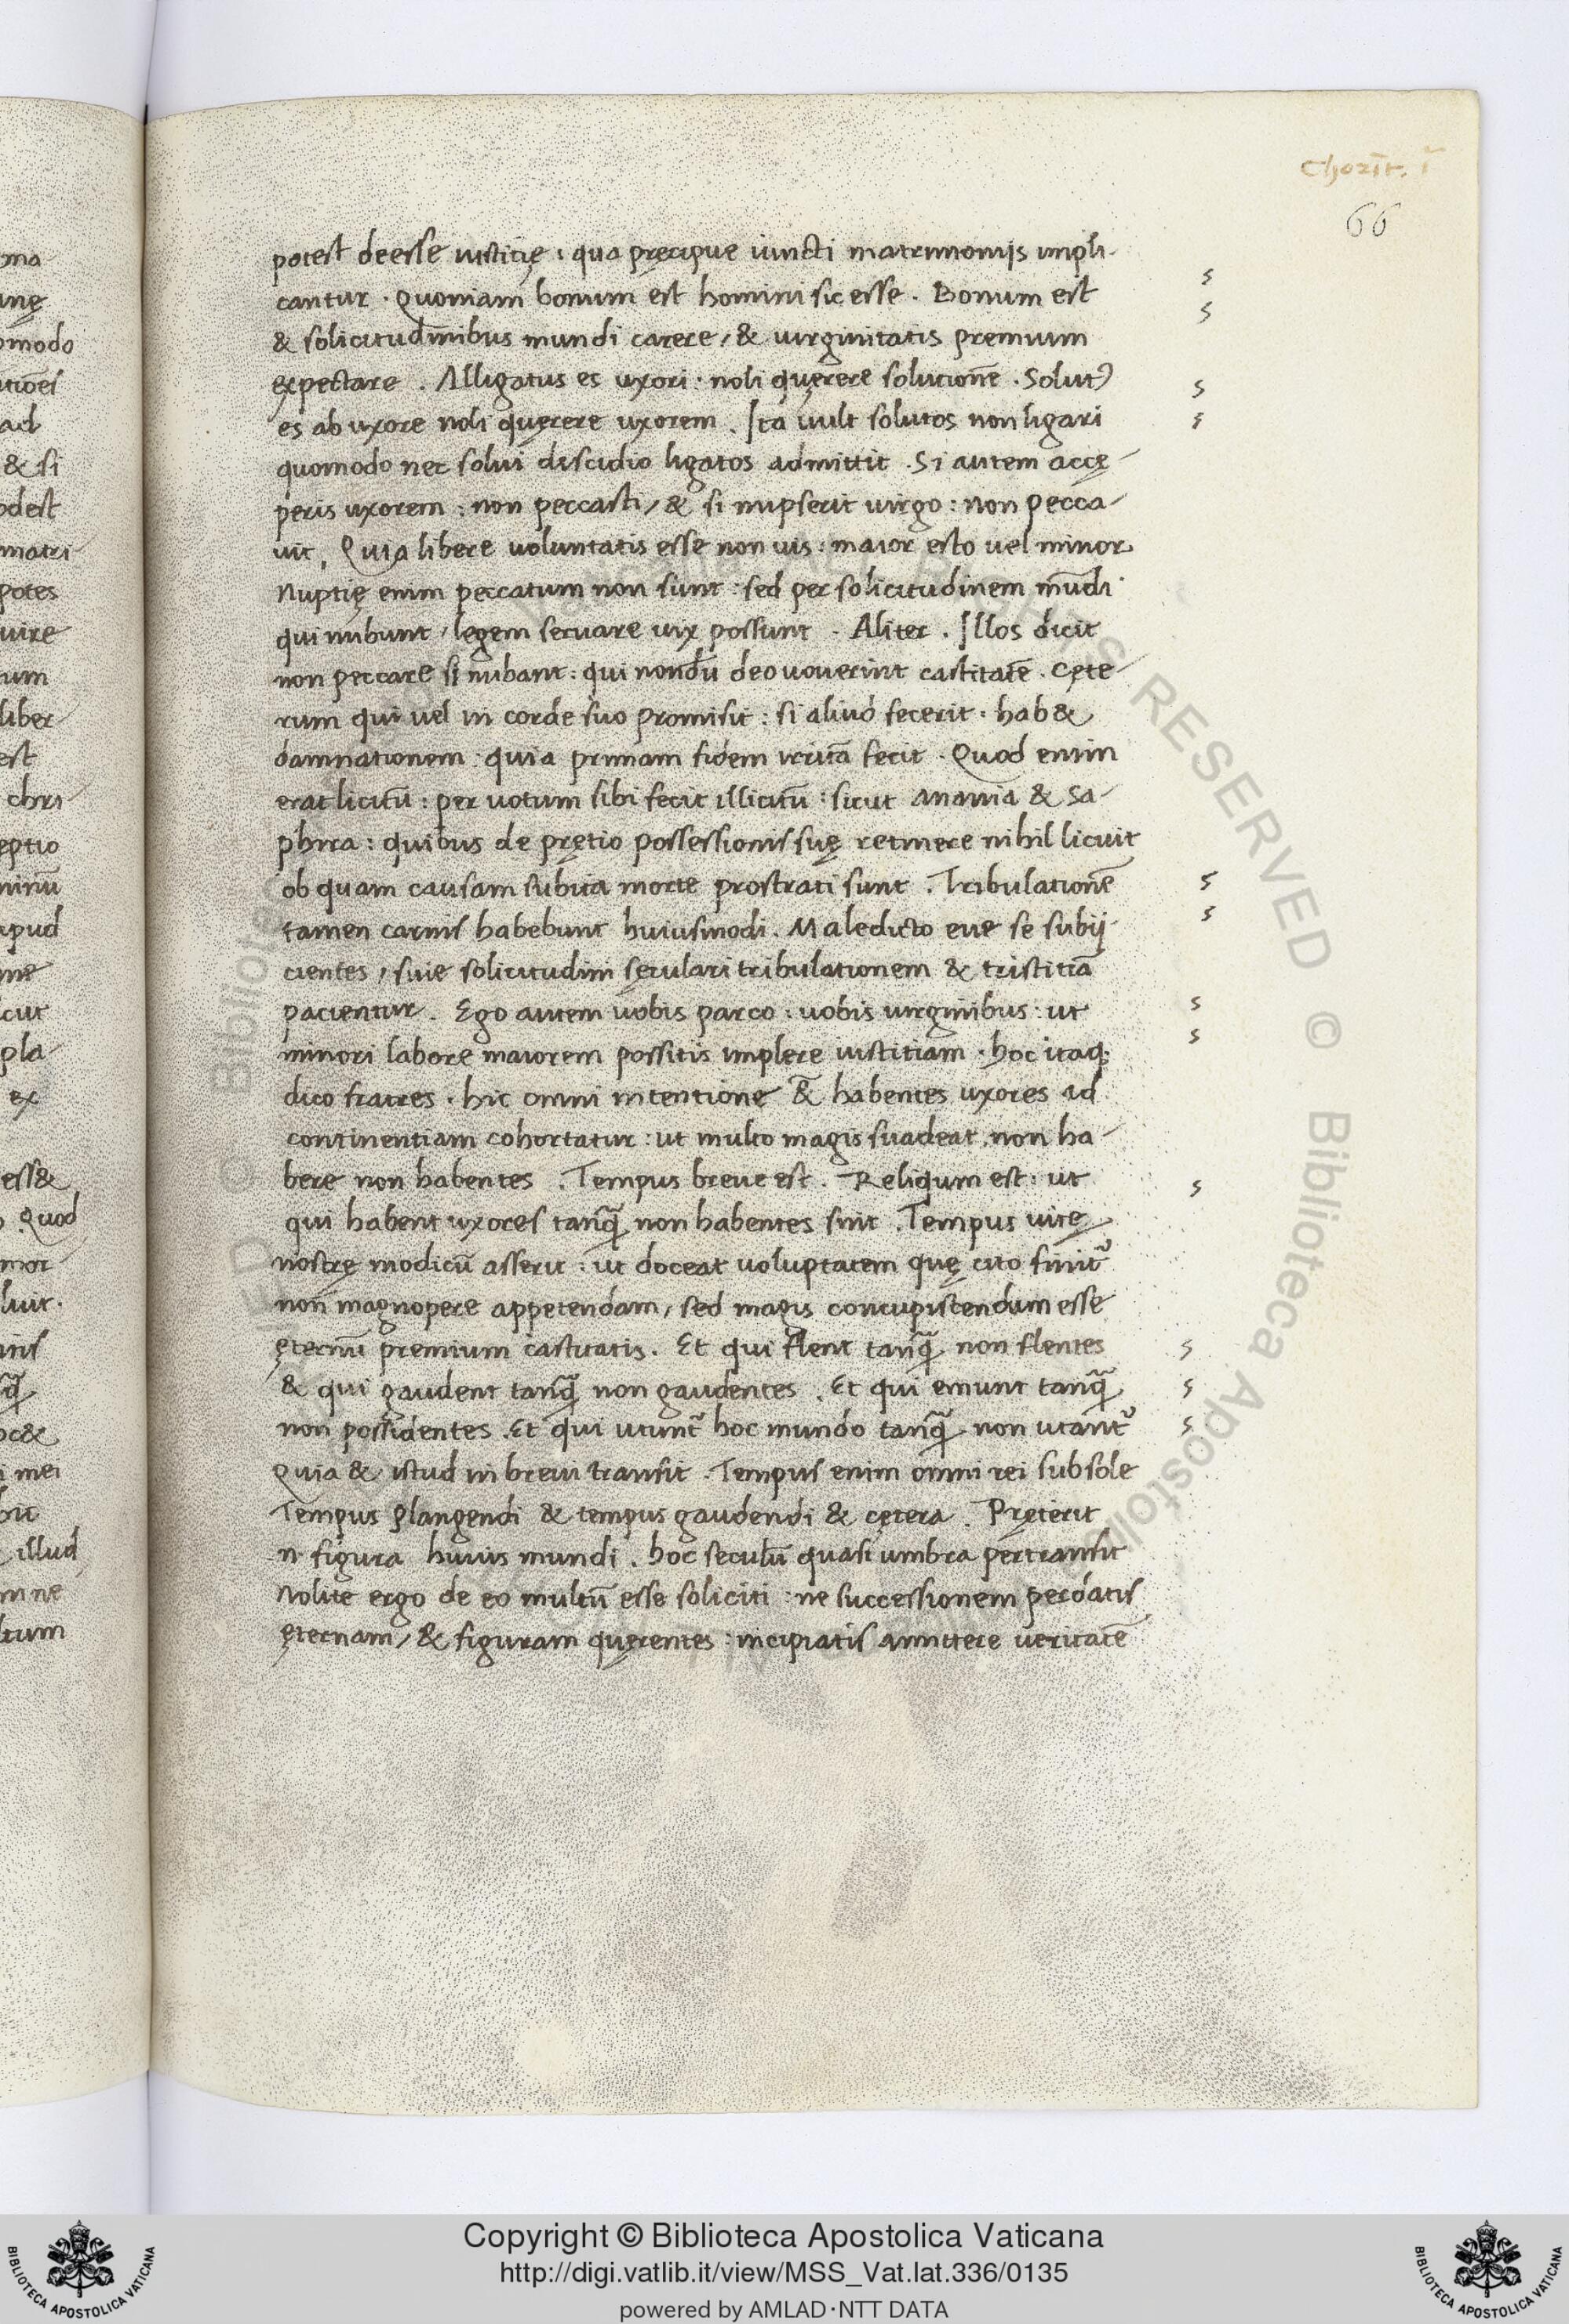 Chorīt. ī
66
potest deesse iusticię : qua pręcipue iuncti matrimonijs impli-
cantur . Quoniam bonum est homini sic esse . Bonum est
& solicitudinibus mundi carere / & uirginitatis premium
expectare . Alligatus es uxori : noli quęrere solutionē . Solut9
es ab uxore noli quęrere uxorem . Ita uult solutos non ligari
quomodo nec solui discidio ligatos admittit . Si autem accę-
peris uxorem : non peccasti / & si nupserit uirgo : non pecca-
uit . Quia libere uoluntatis esse non uis : maior esto uel minor
Nuptię enim peccatum non sunt : sed per solicitudinem mūdi
qui nubunt / legem seruare uix possunt . Aliter . Illos dicit
non peccare si nubant : qui nondū deo uouerint castitatē . Cęte-
rum qui uel in corde suo promisit : si aliud fecerit . hab&
damnationem : quia primam fidem irritā fecit . Quod enim
erat licitū : per uotum sibi fecit illicitū : sicut anania & Sa-
phira : quibus de pretio possessionis suę retinere nihil licuit
ob quam causam subita morte prostrati sunt . Tribulationē
tamen carnis habebunt huiusmodi . Maledicto eue se subij-
cientes / siue solicitudini sęculari tribulationem & tristitiā
pacientur . Ego autem uobis parco : uobis uirginibus : ut
minori labore maiorem possitis implere iustitiam . hoc itaq;
dico fratres . hic omni intentione & habentes uxores ad
continentiam cohortatur : ut multo magis suadeat non ha-
bere non habentes . Tempus breue est . Reliqum est : ut
qui habent uxores tanq̄ non habentes sint . Tempus uitę
nostrę modicū asserit : ut doceat uoluptatem quę cito finit᷑
non magnopere appetendam / sed magis concupiscendum esse
ęternū premium castitatis . Et qui flent tanq̄ non flentes
& qui gaudent tanq̄ non gaudentes . Et qui emunt tanq̄
non possidentes . Et qui utunt᷑ hoc mundo tanq̄ non utant᷑
Quia & istud in breui transit . Tempus enim omni rei sub sole
Tempus plangendi & tempus gaudendi & cętera . Pręterit
n figura huius mundi . hoc seculū quasi umbra pertransit
Nolite ergo de eo multū esse soliciti : ne successionem perdatis
ęternam / & figuram quęrentes : incipiatis amittere ueritatē
Copyright © Biblioteca Apostolica Vaticana
http://digi.vatlib.it/view/MSS_Vat.lat.336/0135
powered by AMLAD·NTT DATA
BIBLIOTECA APOSTOLICA VATICANA
BIBLIOTECA APOSTOLICA VATICANA